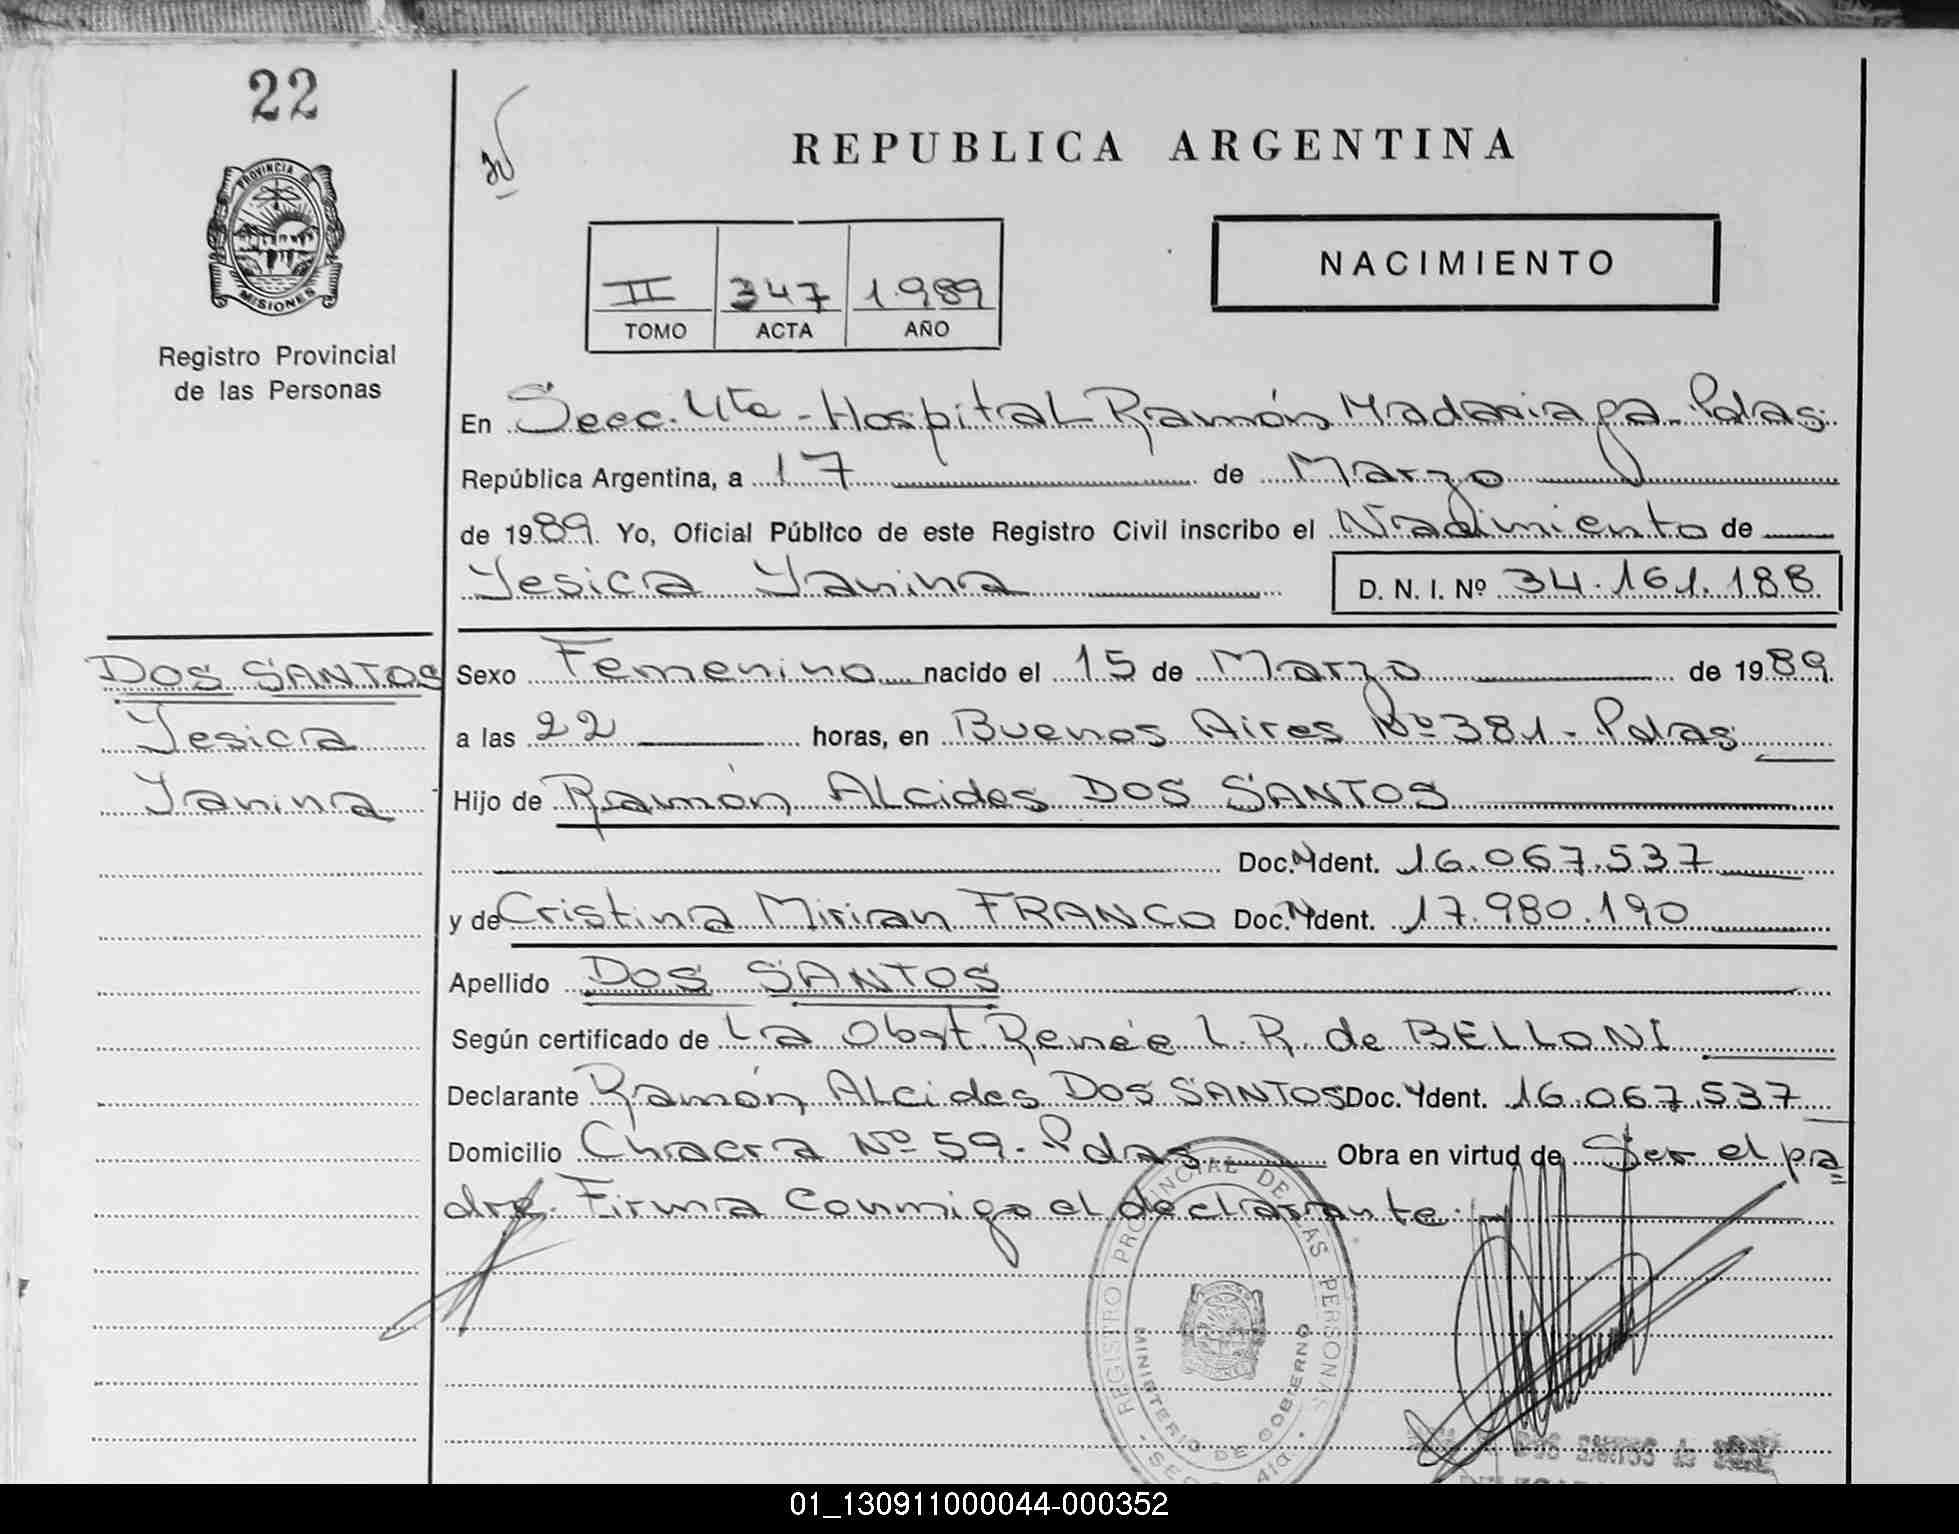 22
PROVINCIA D
MISIONES
Registro Provincial
de las Personas
REPUBLICA ARGENTINA
II 347 1.989
TOMO ACTA AÑO
NACIMIENTO
En Secc. 4ta - Hospital Ramón Madariaga - Pdas.
República Argentina, a 17 de Marzo
de 1989. Yo, Oficial Público de este Registro Civil inscribo el Nacimiento de
Yesica Yanina D. N. I. Nº 34.161.188
DOS SANTOS
Yesica
Yanina
Sexo Femenino nacido el 15 de Marzo de 1989.
a las 22 horas, en Buenos Aires Nº 381 - Pdas
Hijo de Ramón Alcides DOS SANTOS
Doc. Ydent. 16.067.537
y de Cristina Mirian FRANCO Doc. Ydent. 17.980.190
Apellido DOS SANTOS
Según certificado de La Obst. Renée L. R. de BELLONI
Declarante Ramón Alcides DOS SANTOS Doc. Ydent. 16.067.537
Domicilio Chacra Nº 59 - Pdas Obra en virtud de Ser el pa
dre. Firma conmigo el declarante.
REGISTRO PROVINCIAL DE LAS PERSONAS
MINISTERIO DE GOBIERNO
DOS SANTOS de
01_130911000044-000352